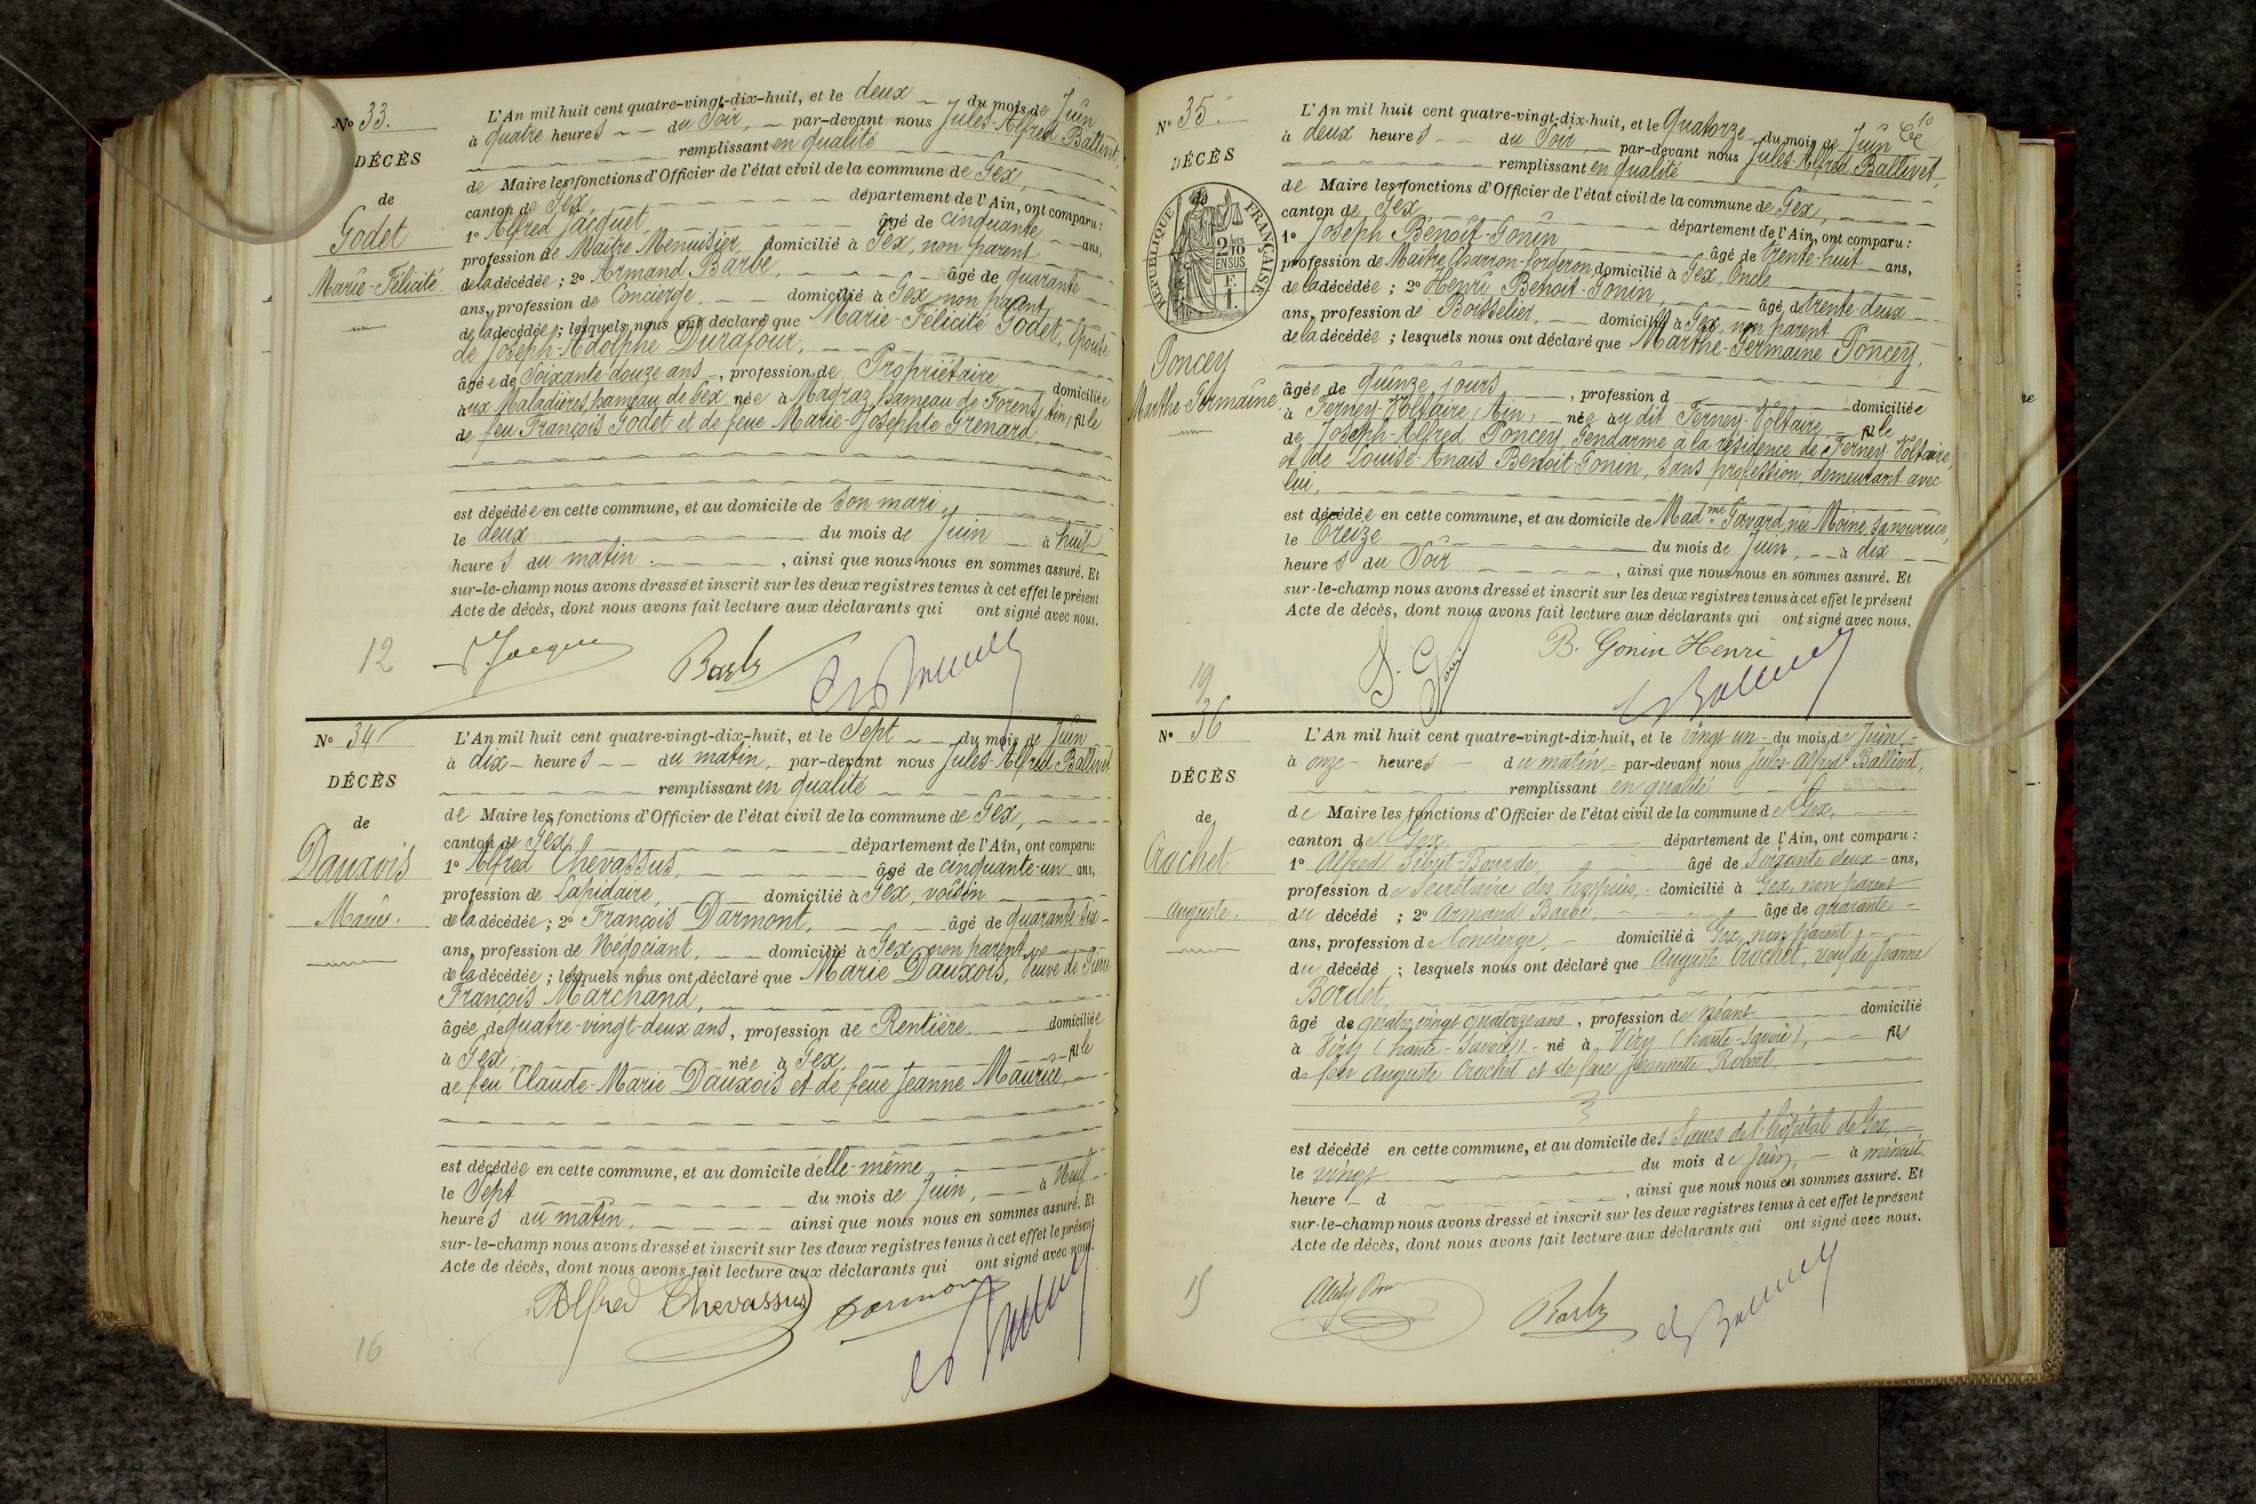 Nº 33.
DÉCÈS
de
Godet
Marie-Félicité.
L'An mil huit cent quatre-vingt-dix-huit, et le deux du mois de Juin
à quatre heures du Soir, par-devant nous Jules-Alfred Ballivet,
remplissant en qualité
de Maire les fonctions d'Officier de l'état civil de la commune de Gex,
canton de Gex, département de l'Ain, ont comparu :
1º Alfred Jacquet, âgé de cinquante ans,
profession de Maître Menuisier domicilié à Gex, non parent
de la décédée ; 2º Armand Barbe, âgé de quarante
ans, profession de Concierge, domicilié à Gex, non parent
de la décédée ; lesquels nous ont déclaré que Marie-Félicité Godet, Epouse
de Joseph-Adolphe Durafour,
âgée de Soixante-douze ans, profession de Propriétaire domiciliée
aux Maladières, hameau de Gex née à Magraz, hameau de Forens, Ain, fille
de feu François Godet et de feue Marie-Josephte Grenard,
est décédée en cette commune, et au domicile de Son mari,
le deux du mois de Juin à huit
heures du matin, ainsi que nous nous en sommes assuré. Et
sur-le-champ nous avons dressé et inscrit sur les deux registres tenus à cet effet le présent
Acte de décès, dont nous avons fait lecture aux déclarants qui ont signé avec nous.
12
Barbe
Nº 34
DÉCÈS
de
Dauxois
Marie.
L'An mil huit cent quatre-vingt-dix-huit, et le Sept du mois de Juin
à dix heures du matin, par-devant nous Jules-Alfred Ballivet
remplissant en qualité
de Maire les fonctions d'Officier de l'état civil de la commune de Gex,
canton de Gex département de l'Ain, ont comparu:
1º Alfred Chevassus, âgé de cinquante-un ans,
profession de Lapidaire, domicilié à Gex, voisin
de la décédée ; 2º François Darmont, âgé de quarante-six
ans, profession de Négociant, domicilié à Gex, non parent
de la décédée ; lesquels nous ont déclaré que Marie Dauxois, Veuve de Pierre
François Marchand,
âgée de quatre-vingt-deux ans, profession de Rentière domiciliée
à Gex, née à Gex, fille
de feu Claude-Marie Dauxois et de feue Jeanne Maurice,
est décédée en cette commune, et au domicile d'elle-même,
le Sept du mois de Juin, à Neuf
heures du matin, ainsi que nous nous en sommes assuré. Et
sur-le-champ nous avons dressé et inscrit sur les deux registres tenus à cet effet le présent
Acte de décès, dont nous avons fait lecture aux déclarants qui ont signé avec nous.
Alfred Chevassus Darmont
16
Nº 35.
DÉCÈS
de
RÉPUBLIQUE FRANÇAISE
2/10 EN SUS
Poncey
Marthe-Germaine
L'An mil huit cent quatre-vingt-dix-huit, et le Quatorze du mois de Juin
à deux heures du Soir, par-devant nous Jules-Alfred Ballivet,
remplissant en qualité
de Maire les fonctions d'Officier de l'état civil de la commune de Gex,
canton de Gex département de l'Ain, ont comparu :
1º Joseph Benoît-Gonin âgé de trente-huit ans,
profession de Maître Charron-forgeron, domicilié à Gex, Oncle
de la décédée ; 2º Henri Benoit-Gonin, âgé de trente-deux
ans, profession de Boisselier, domicilié à Gex, non parent
de la décédée ; lesquels nous ont déclaré que Marthe-Germaine Poncey,
âgée de quinze jours, profession d domiciliée
à Ferney-Voltaire, Ain, née au dit Ferney-Voltaire, fille
de Joseph-Alfred Poncey, Gendarme à la résidence de Ferney-Voltaire,
et de Louise-Anaïs Benoit-Gonin, sans profession, demeurant avec
lui,
est décédée en cette commune, et au domicile de Madme Favard, née Moine, sa nourrice,
le Treize du mois de Juin, à dix
heures du Soir, ainsi que nous nous en sommes assuré. Et
sur-le-champ nous avons dressé et inscrit sur les deux registres tenus à cet effet le présent
Acte de décès, dont nous avons fait lecture aux déclarants qui ont signé avec nous.
B. Gonin Henri
19
Nº 36
DÉCÈS
de
Crochet
Auguste.
L'An mil huit cent quatre-vingt-dix-huit, et le vingt un du mois de Juin,
à onze heures du matin par-devant nous Jules-Alfred Ballivet,
remplissant en qualité
de Maire les fonctions d'Officier de l'état civil de la commune de Gex,
canton de Gex département de l'Ain, ont comparu :
1º Alfred âgé de Soixante deux ans,
profession de Secrétaire des hospices, domicilié à Gex, non parent
du décédé ; 2º Armand Barbe, âgé de quarante
ans, profession de Concierge, domicilié à Gex, non parent,
du décédé ; lesquels nous ont déclaré que Auguste Crochet, veuf de Jeanne
Bordet,
âgé de quatre vingt quatorze ans, profession de néant domicilié
à Viry (haute-Savoie), né à Viry (haute-Savoie), fils
de feu Auguste Crochet et de feue Jeannette
est décédé en cette commune, et au domicile des Sœurs de l'hôpital de Gex,
le vingt du mois de Juin, à minuit
heure d , ainsi que nous nous en sommes assuré. Et
sur-le-champ nous avons dressé et inscrit sur les deux registres tenus à cet effet le présent
Acte de décès, dont nous avons fait lecture aux déclarants qui ont signé avec nous.
15
Barbe